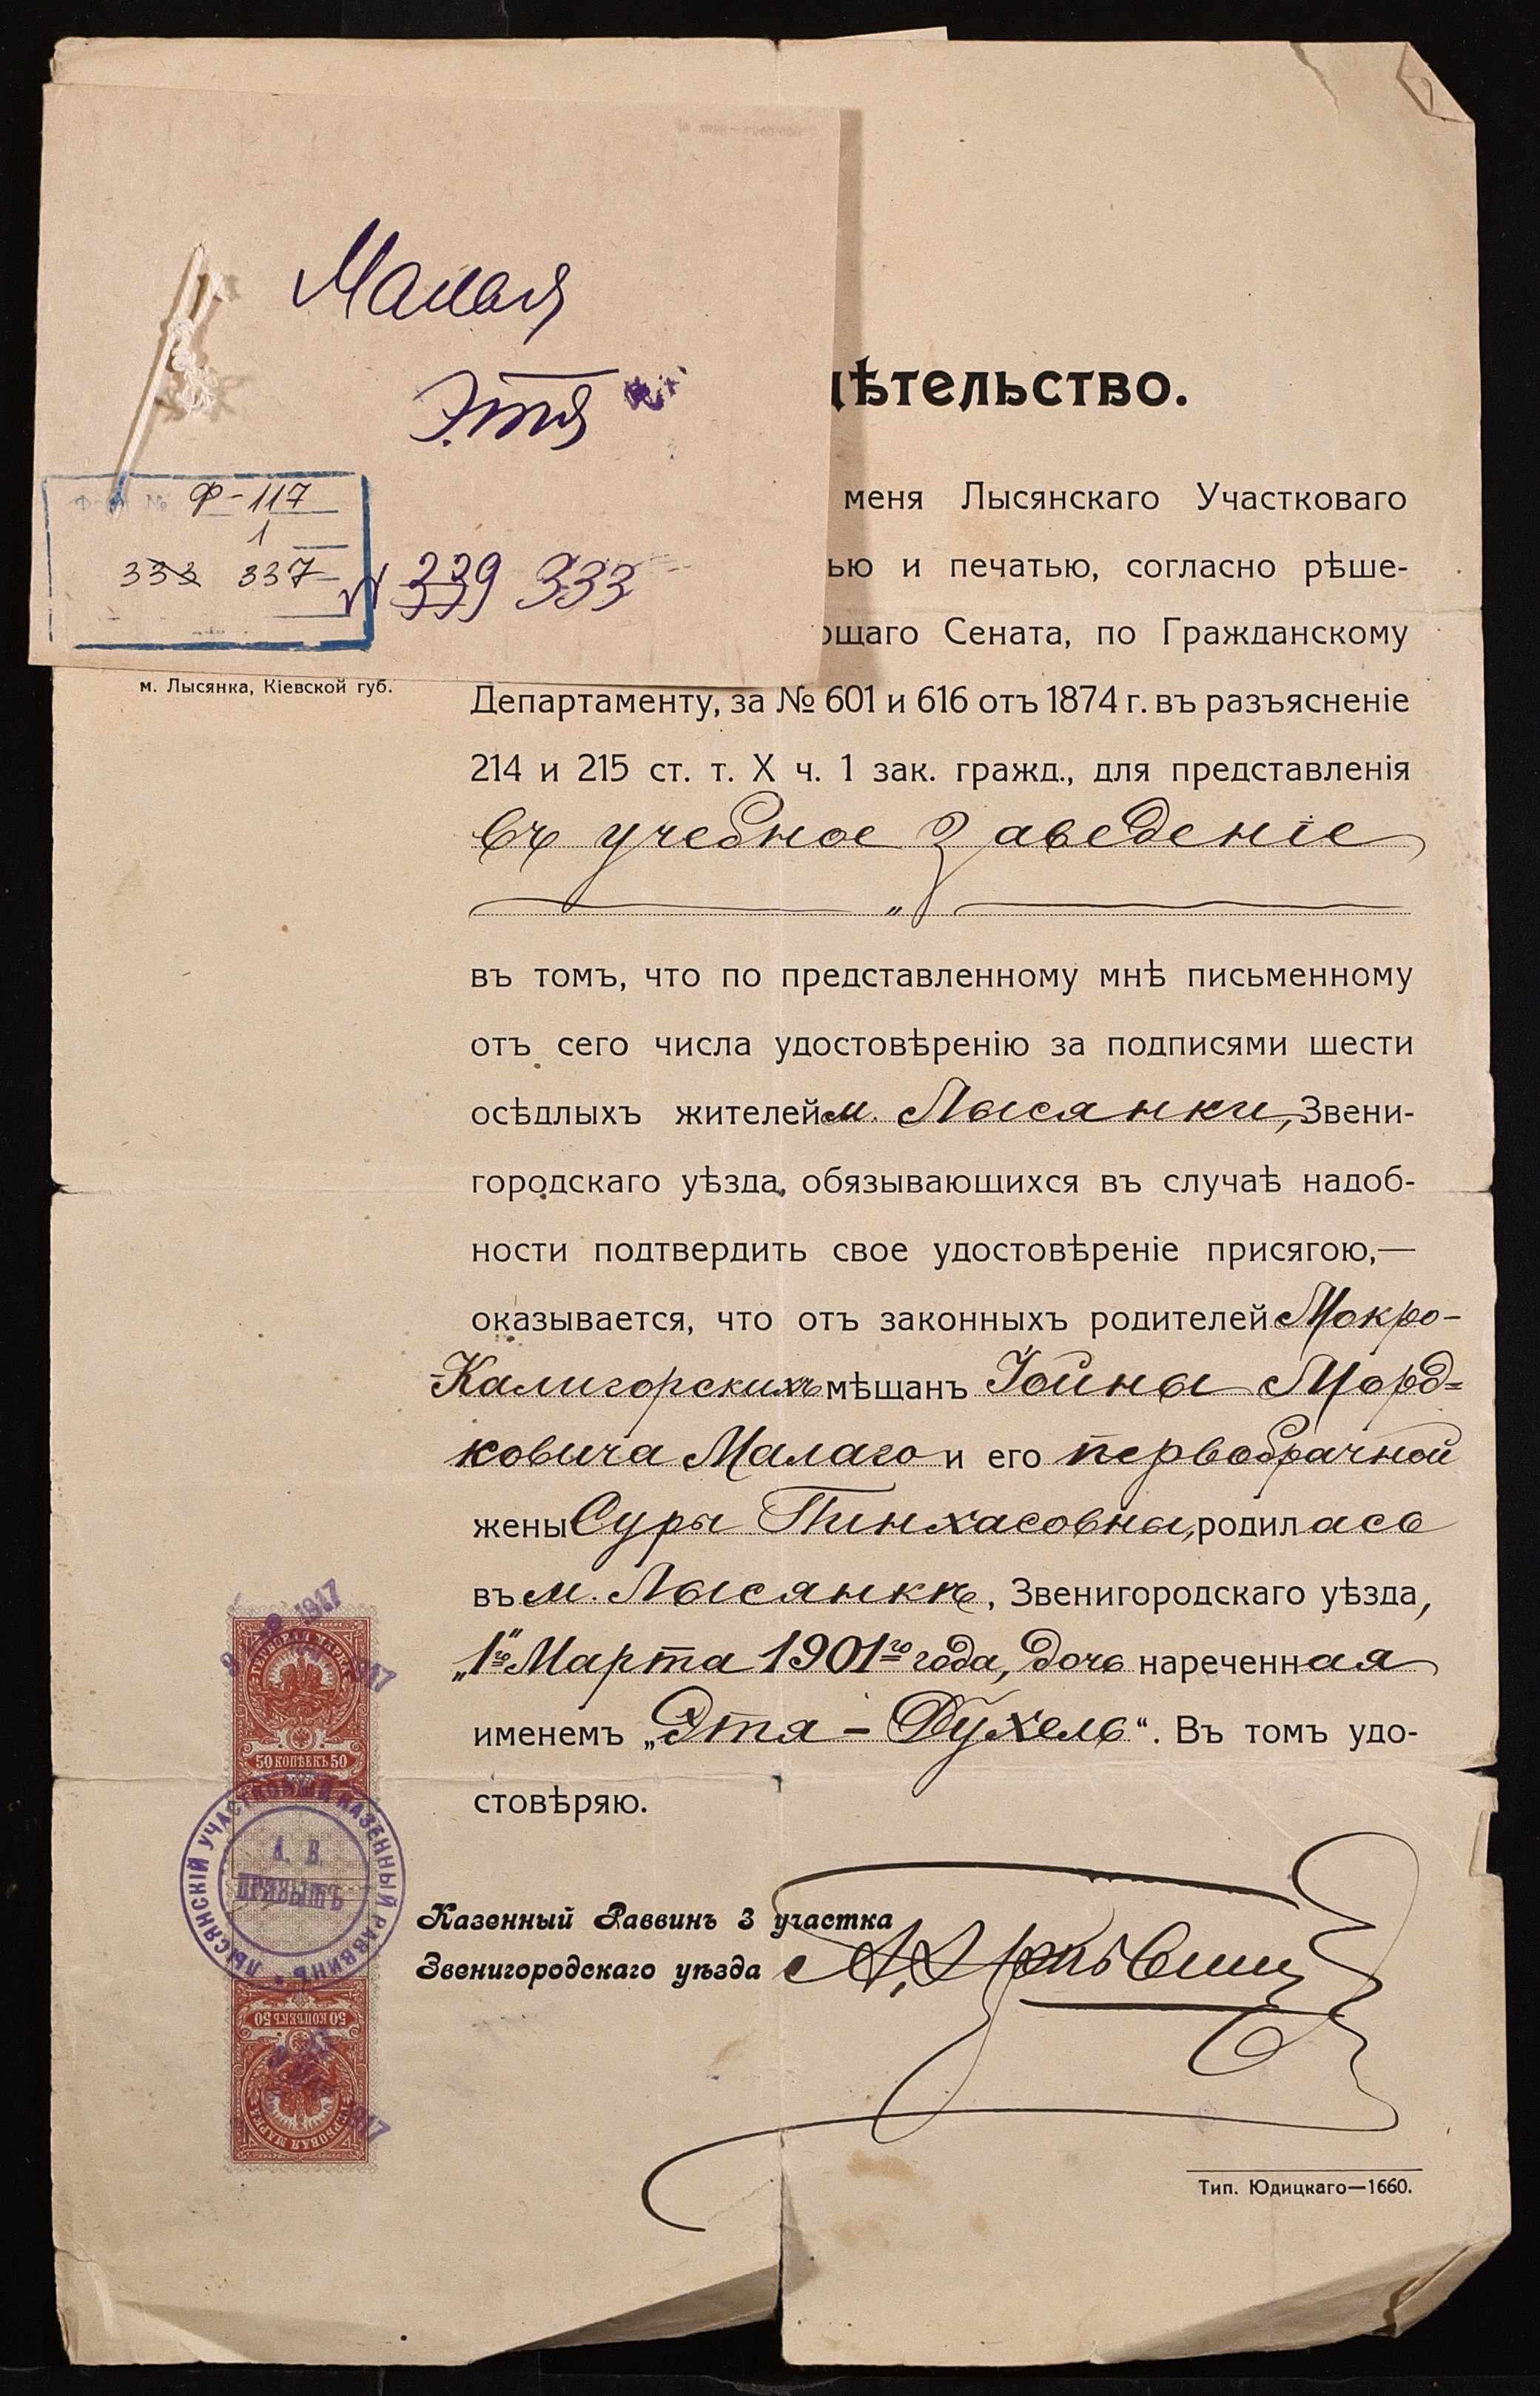 Малая
Этя
Ф-117
1
333 337
№ 339 333
ѣтельство.
меня Лысянскаго Участковаго
ью и печатью, согласно рѣше-
ющаго Сената, по Гражданскому
м. Лысянка, Кіевской губ.
Департаменту, за № 601 и 616 отъ 1874 г. въ разъясненіе
214 и 215 ст. т. X ч. 1 зак. гражд., для представленія
въ учебное Заведеніе
„
въ томъ, что по представленному мнѣ письменному
отъ сего числа удостовѣренію за подписями шести
осѣдлыхъ жителей м. Лысянки, Звени-
городскаго уѣзда, обязывающихся въ случаѣ надоб-
ности подтвердить свое удостовѣреніе присягою,—
оказывается, что отъ законныхъ родителей Мокро-
-Калигорскихъ мѣщанъ Іойны Морд=
ковича Малаго и его первобрачной
жены Суры Пинхасовны, родилась
въ м. Лысянкѣ, Звенигородскаго уѣзда,
„1го" Марта 1901го года, дочь нареченная
именемъ „Этя-Рухель“. Въ томъ удо-
стовѣряю.
ГЕРБОВАЯ МАРКА
50 КОПѢЕКЪ 50
ЛЫСЯНСКІЙ УЧАСТКОВЫЙ КАЗЕННЫЙ РАВВИНЪ
А. В.
Казенный Раввинъ 3 участка
Звенигородскаго уѣзда
50 КОПѢЕКЪ 50
ГЕРБОВАЯ МАРКА
Тип. Юдицкаго—1660.